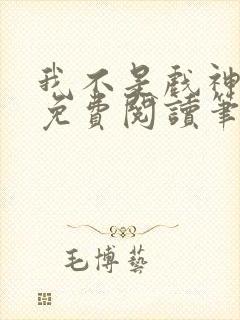 我不是戲神
免費閱讀筆
毛博藝